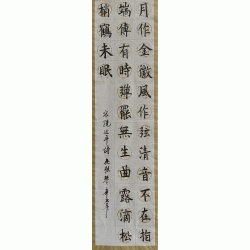 月作金徽風作弦清音不在指
端傳有時彈罷無生曲露滴松
梢鶴未眠